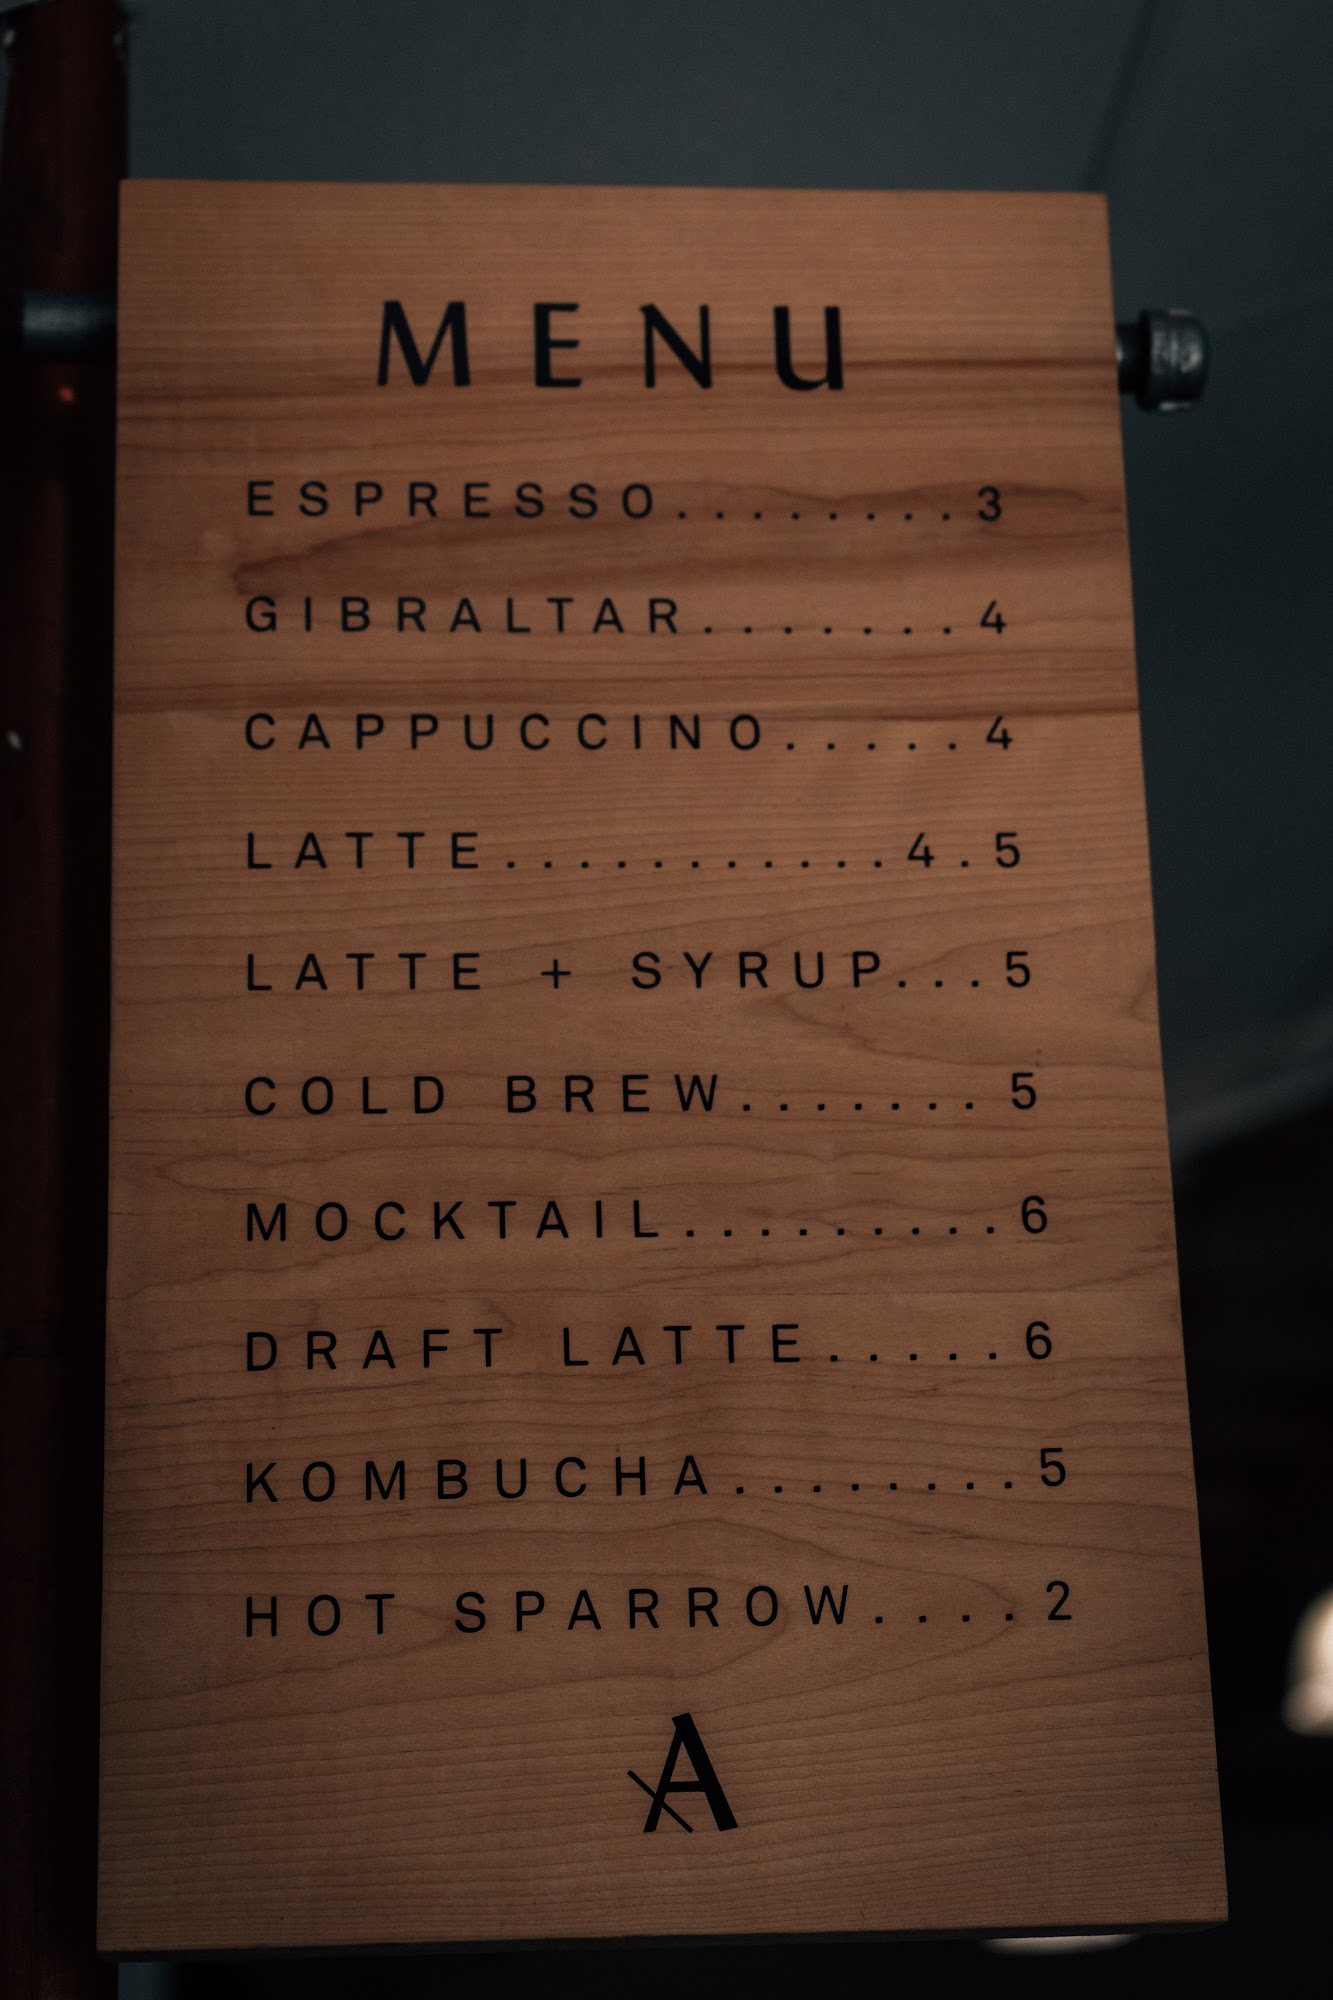 MENU
ESPRESSO.........3
GIBRALTAR.......4
CAPPUCCINO.....4
LATTE...........4.5
LATTE + SYRUP...5
COLD BREW.......5
MOCKTAIL.........6
DRAFT LATTE.....6
KOMBUCHA........5
HOT SPARROW....2
A